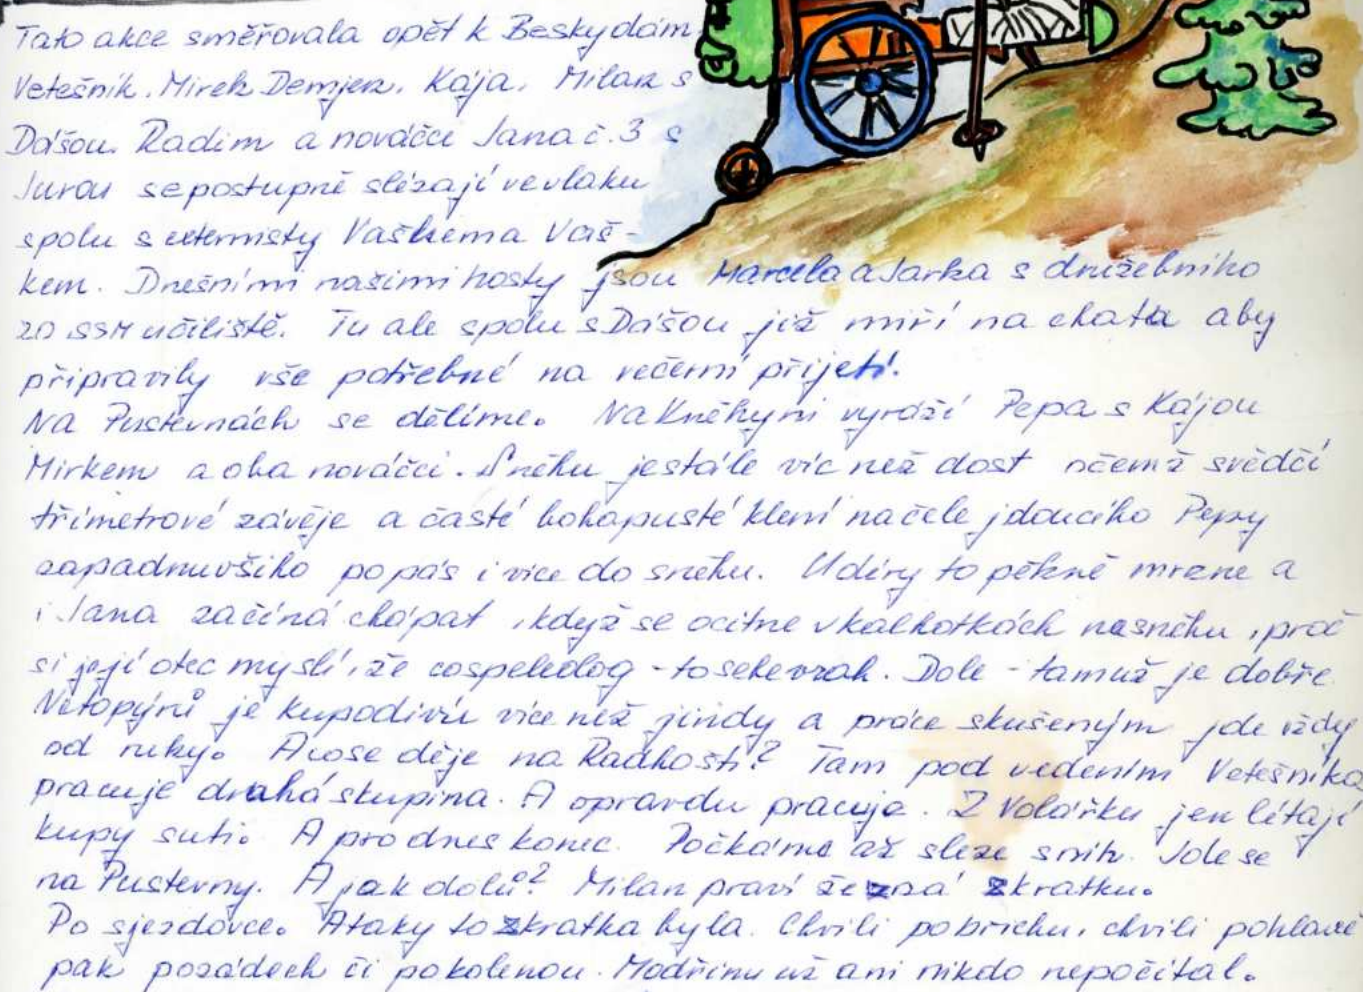 Tato akce směřovala opět k Beskydám.
Vetešník, Mirek Demjen, Kája, Milan s
Dášou, Radim a nováčci Jana č. 3 s
Jurou se postupně slézají ve vlaku
spolu s externisty Vaškem a Vaš-
kem. Dnešními našimi hosty jsou Marcela a Jarka s družebního
20 SSM učiliště. Tu ale spolu s Dášou již míří na chatu aby
připravily vše potřebné na večerní přijetí.
Na Pustevnách se dělíme. Na Kněhyni vyráží Pepa s Kájou
Mirkem a oba nováčci. Sněhu je stále víc než dost o čemž svědčí
třímetrové závěje a časté bohapusté klení na čele jdoucího Pepy
zapadnuvšího po pás i více do sněhu. U díry to pěkně mrzne a
i Jana začíná chápat, když se ocitne v kalhotkách na sněhu, proč
si její otec myslí, že co speleolog - to sebevrah. Dole - tam už je dobře.
Netopýrů je kupodivu více než jindy a práce skušeným jde vždy
od ruky. A co se děje na Radhošti? Tam pod vedením Vetešníka
pracuje druhá skupina. A opravdu pracuje. Z Volářku jen létají
kupy suti. A pro dnes konec. Počkáme až sleze sníh. Jde se
na Pustevny. A jak dolů? Milan praví že zná zkratku.
Po sjezdovce. A taky to zkratka byla. Chvíli po břichu, chvíli po hlavě
pak po zádech či po kolenou. Modřinu už ani nikdo nepočítal.